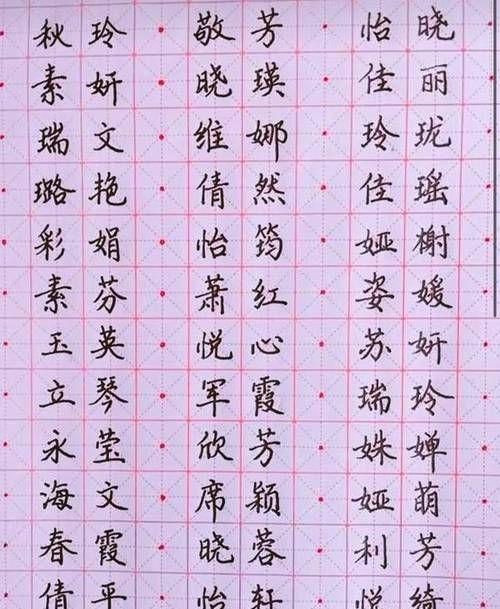 秋玲 敬芳 怡晓
素妍 晓瑛 佳丽
瑞文 维娜 玲珑
璐艳 倩然 佳瑶
彩娟 怡筠 娅榭
素芬 萧红 姿媛
玉英 悦心 苏妍
立琴 军霞 瑞玲
永莹 欣芳 姝婵
海文 席颖 娅萌
春霞 晓蓉 利芳
倩平 怡轩 悦绮